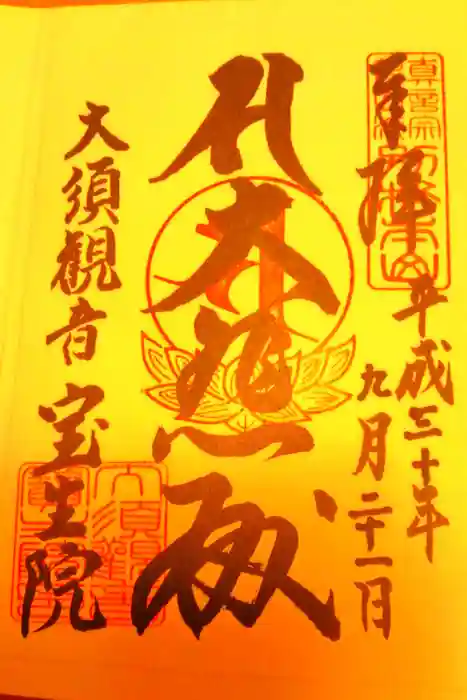 奉拝
平成三十年
九月二十一日
大悲殿
大須観音
宝生院